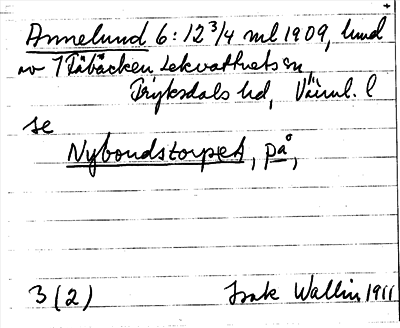 Annelund 6:12 3/4 ml 1909, lund
av 7 Fåbäcken Lekvattnets sn,
Fryksdals hd, Värml. l
se
Nybondstorpet, på,
3 (2) Isak Wallin 1911